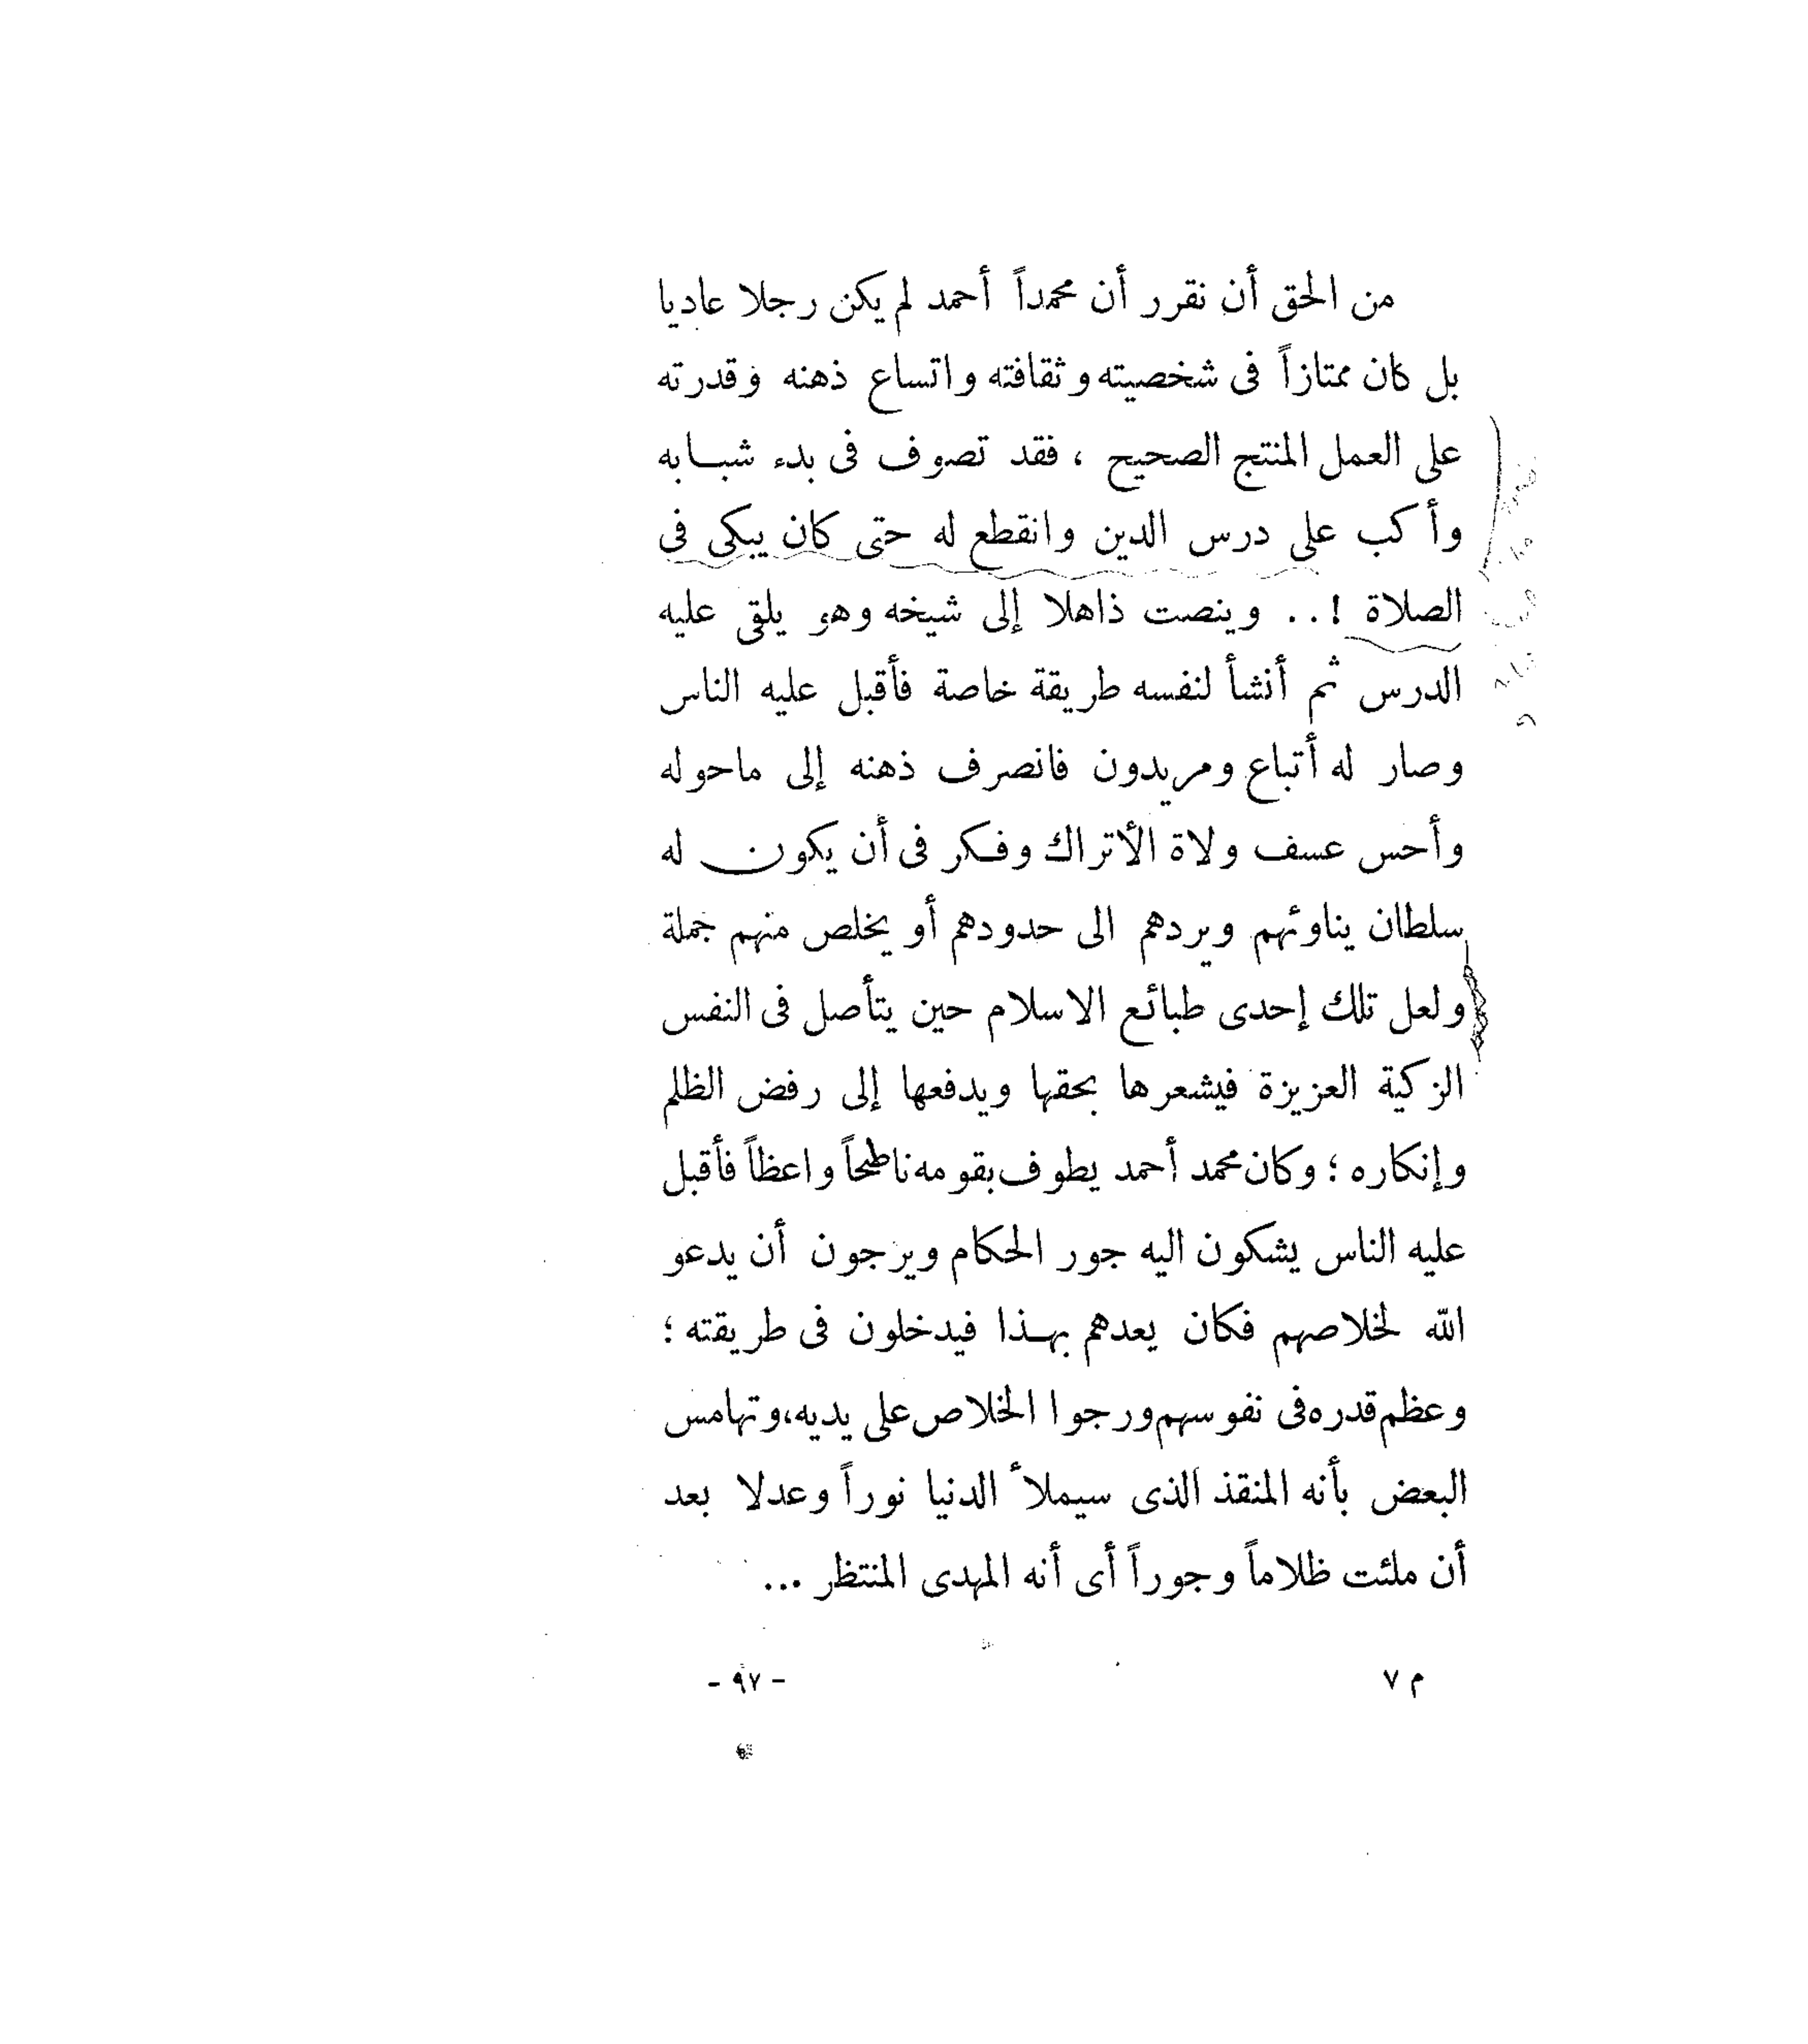 من الحق أن نقرر أن محمداً أحمد لم يكن رجلا عاديا
بل كان ممتازاً فى شخصيته وثقافته واتساع ذهنه وقدرته
على العمل المنتج الصحيح ، فقد تصوف فى بدء شبابه
وأكب على درس الدين وانقطع له حتى كان يبكى فى
الصلاة !.. وينصت ذاهلا إلى شيخه وهو يلقى عليه
الدرس ثم أنشأ لنفسه طريقة خاصة فأقبل عليه الناس
وصار له أتباع ومريدون فانصرف ذهنه إلى ماحوله
وأحس عسف ولاة الأتراك وفكر فى أن يكون له
سلطان يناوئهم ويردهم الى حدودهم أو يخلص منهم جملة
ولعل تلك إحدى طبائع الاسلام حين يتأصل فى النفس
الزكية العزيزة فيشعرها بحقها ويدفعها إلى رفض الظلم
وإنكاره ؛ وكان محمد أحمد يطوف بقومه ناطحاً واعظاً فأقبل
عليه الناس يشكون اليه جور الحكام ويرجون أن يدعو
الله لخلاصهم فكان يعدهم بهذا فيدخلون فى طريقته ؛
وعظم قدره فى نفوسهم ورجوا الخلاص على يديه، وتهامس
البعض بأنه المنقذ الذى سيملأ الدنيا نوراً وعدلا بعد
أن ملئت ظلاماً وجوراً أى أنه المهدى المنتظر ...
م ٧
- ٩٧ -